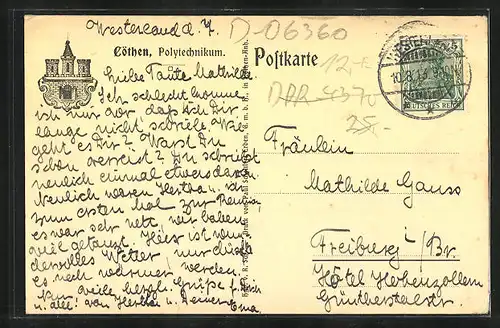 Westerland d. 7.
D-06360
Cöthen, Polytechnikum.
Postkarte
12.-
DDR 4370
25.-
WESTERLAND
10.8.
DEUTSCHES REICH
Liebe Tante Mathilde!
Ich schlecht komme
ich mir vor, daß ich Dir
lange nicht schrieb. Wie
geht es Dir? Warst Du
schon verreist? Du schriebst
neulich einmal etwas davon.
Neulich waren Hertha u. ich
zum ersten Mal zur Reunion
es war sehr nett, wir haben
viel getanzt. Hier ist
Wetter, nur dürfte
es noch wärmer werden.
Nun viele herzl. Grüße f. Dich
u. alle! von Hertha u. Deiner
Fräulein
Mathilde Gauss
Freiburg i/Br.
Hôtel Hohenzollern
Günthertalstr.